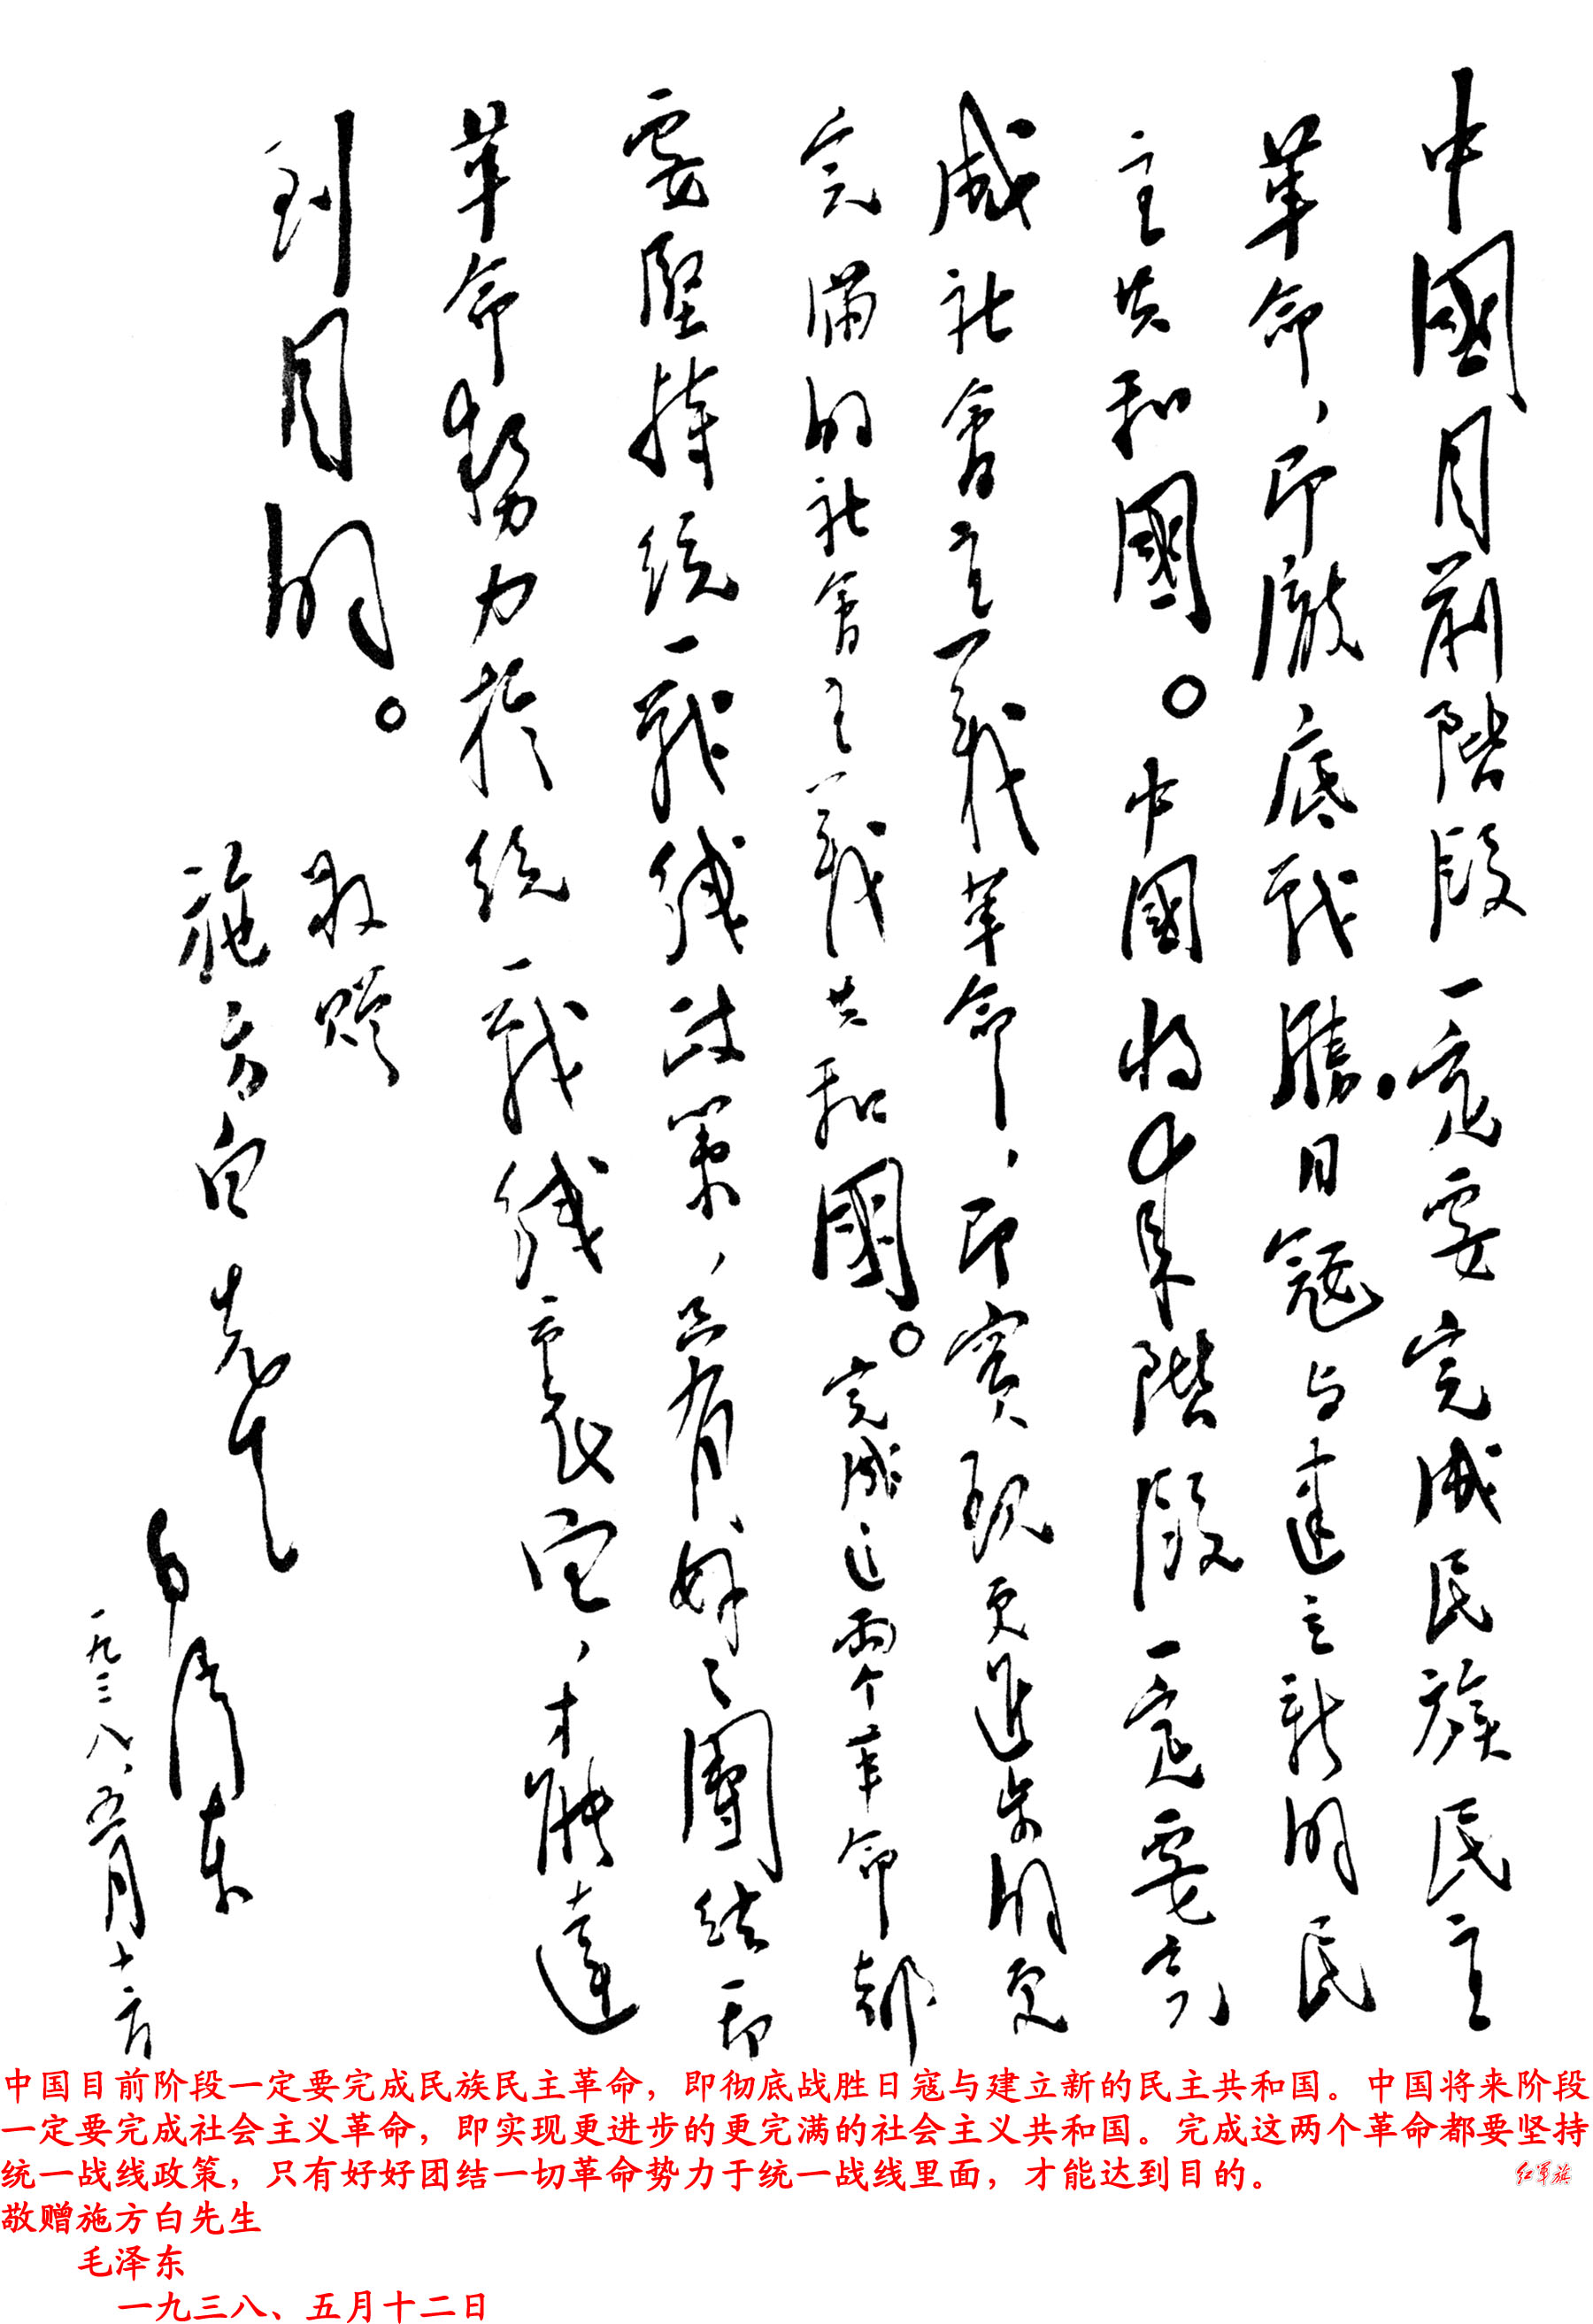 中國目前階段一定要完成民族民主
革命，即徹底战勝日寇与建立新的民
主共和國。中國将来階段一定要完
成社會主義革命，即實现更進步的更
完满的社會主義共和國。完成这兩个革命都
要堅持统一战线政策，只有好々團结一切
革命势力於统一战线裏面，才能達
到目的。
敬赠
施方白先生
毛泽东
一九三八、五月十二日
中国目前阶段一定要完成民族民主革命，即彻底战胜日寇与建立新的民主共和国。中国将来阶段
一定要完成社会主义革命，即实现更进步的更完满的社会主义共和国。完成这两个革命都要坚持
统一战线政策，只有好好团结一切革命势力于统一战线里面，才能达到目的。
红军旗
敬赠施方白先生
毛泽东
一九三八、五月十二日